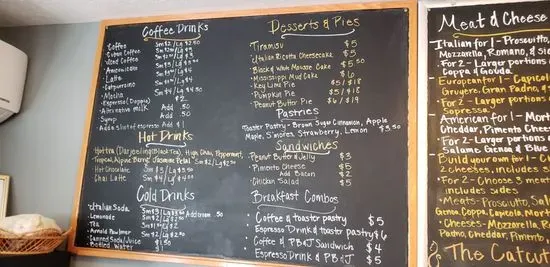 Coffee Drinks
Coffee Sm $2/Lg $2.50
Cuban Coffee
Iced Coffee
Americano
Latte
Cappuccino
Mocha
Espresso (Doppio)
Alternative milk Add .50
Syrup Add .50
Add a shot of espresso Add $1
Hot Drinks
Hot tea (Darjeeling (Black Tea), High Chai, Peppermint,
Tropical, Alpine Berry, Jasmine Petal Sm $2/Lg $2.50
Hot Chocolate Sm $3/$3.50
Chai Latte Sm $4/Lg $4.50
Cold Drinks
Italian Soda Sm $3/Lg $3.50 Add cream .50
Lemonade
Tea
Arnold Palmer
Canned Soda/Juice $1.50
Bottled Water
Desserts & Pies
Tiramisu $5
Italian Ricotta Cheesecake $5
Black & White Mousse Cake $5.50
Mississippi Mud Cake $6
Key Lime Pie $5/$18
Pumpkin Pie $5/$18
Peanut Butter Pie $6/$19
Pastries
Toaster Pastry - Brown Sugar Cinnamon, Apple
Maple, S'mores, Strawberry, Lemon $3.50
Sandwiches
Peanut Butter & Jelly $3
Pimento Cheese $5
Add Bacon $2
Chicken Salad $5
Breakfast Combos
Coffee & toaster pastry $5
Espresso Drink & toaster pastry $6
Coffee & PB&J Sandwich $4
Espresso Drink & PB&J $5
Meat & Cheese
Italian for 1 - Prosciutto,
Mozzarella, Romano, &
For 2 - Larger portions
Coppa & Gouda.
European for 1 - Capicol
Gruyere, Gran Padno, &
For 2 - Larger portions
Sopressa
American for 1 - Mort
Cheddar, Pimento Chee
For 2 - Larger portions
Salame Genoa & Blue
Build your own for 1 - Ch
2 cheeses, includes 3 s
For 2 - Choose 3 meat
includes sides
Meats: Prosciutto, Sal
Genoa, Coppa, Capicola, Mort
Cheeses - Mozzarella, Ro
Provolone, Cheddar, Pim
The Catcut